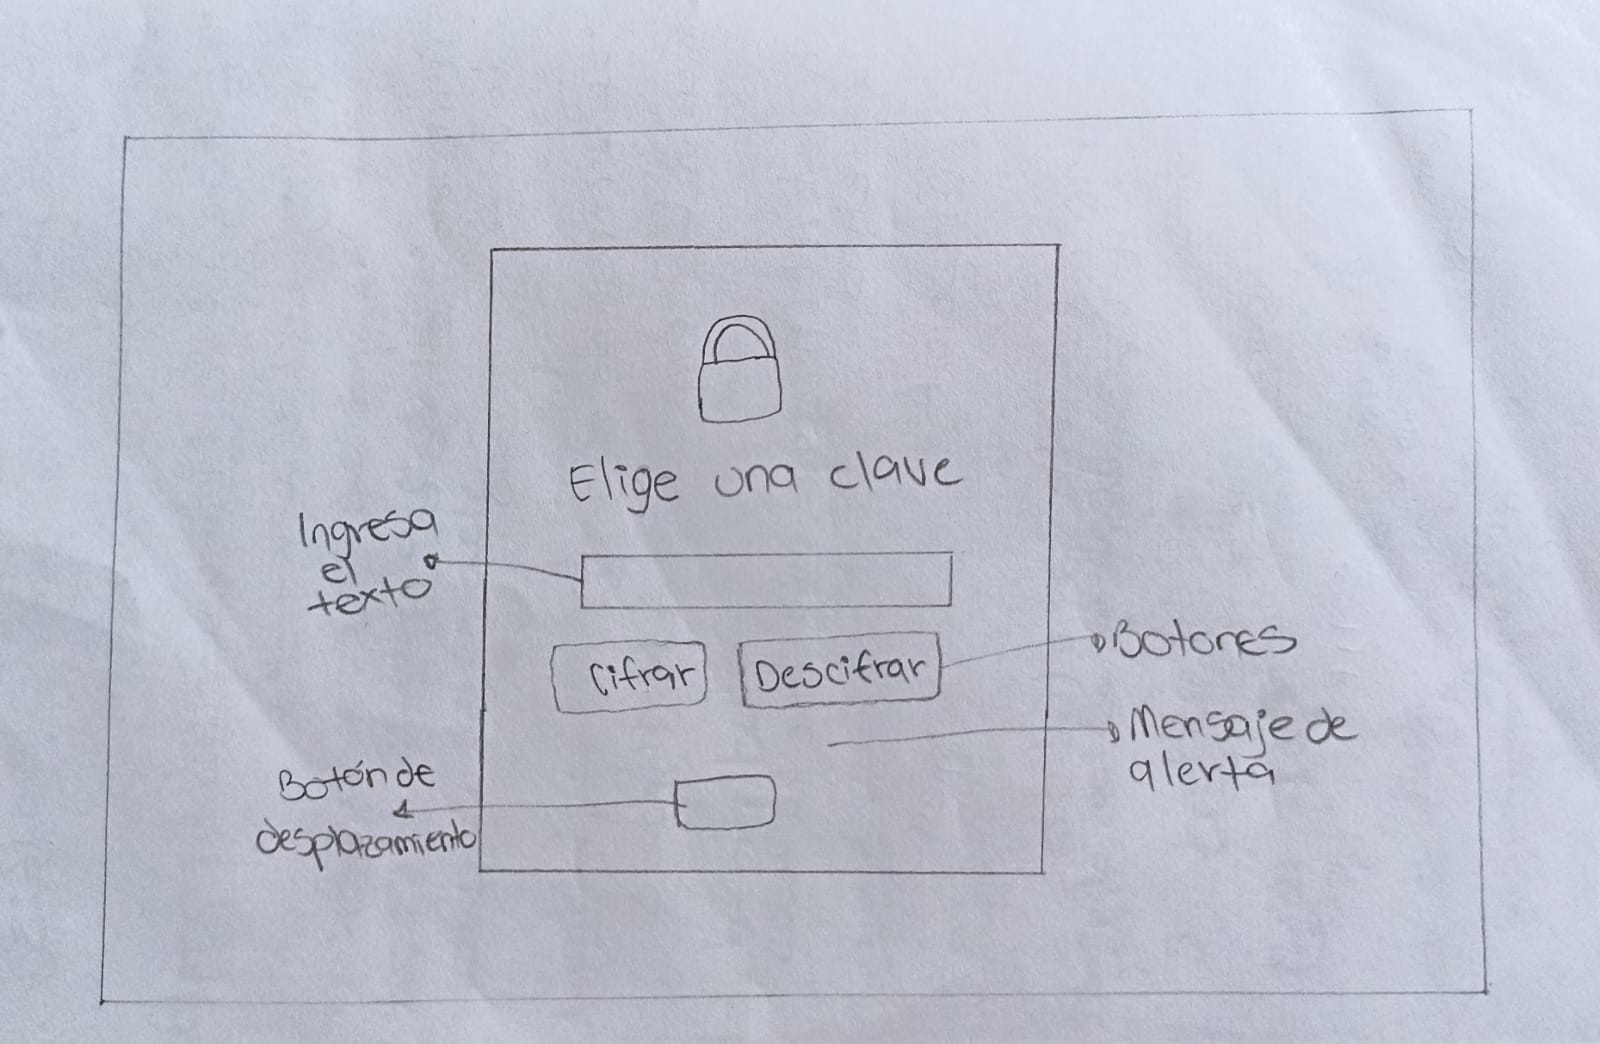 Elige una clave
Ingresa
el
texto
Cifrar
Descifrar
Botones
Mensaje de
alerta
Botón de
desplazamiento